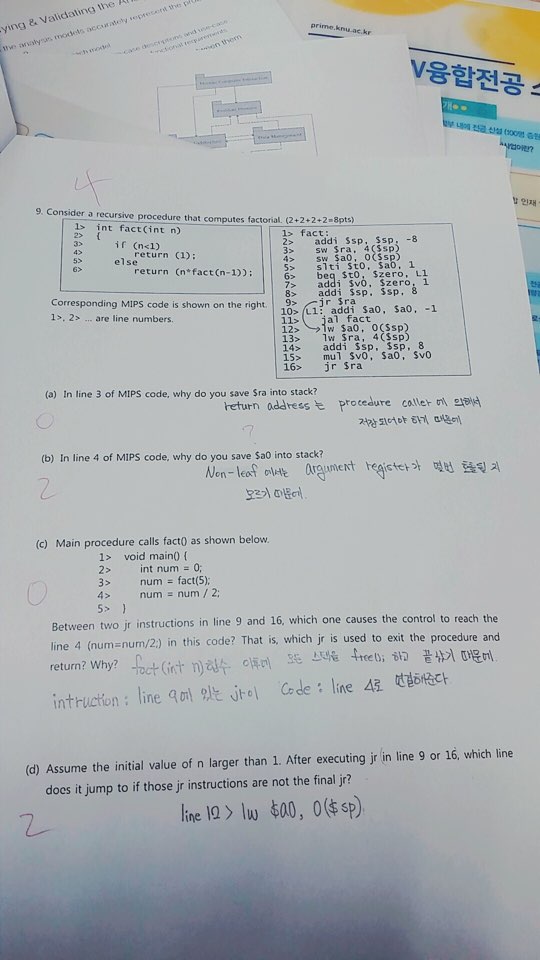 ying & Validating the
the analysis models accurately represent the
case descriptions and use-case
functional requirements
ween them
prime.knu.ac.kr
V융합전공
Data Management
4
9. Consider a recursive procedure that computes factorial. (2+2+2+2=8pts)
1> int fact(int n)
2> {
3> if (n<1)
4> return (1);
5> else
6> return (n*fact(n-1));
Corresponding MIPS code is shown on the right.
1>, 2> ... are line numbers.
1> fact:
2> addi $sp, $sp, -8
3> sw $ra, 4($sp)
4> sw $a0, 0($sp)
5> slti $t0, $a0, 1
6> beq $t0, $zero, L1
7> addi $v0, $zero, 1
8> addi $sp, $sp, 8
9> jr $ra
10> L1: addi $a0, $a0, -1
11> jal fact
12> lw $a0, 0($sp)
13> lw $ra, 4($sp)
14> addi $sp, $sp, 8
15> mul $v0, $a0, $v0
16> jr $ra
(a) In line 3 of MIPS code, why do you save $ra into stack?
return address는 procedure caller에 의해서
0
저장되어야 하기 때문에
?
(b) In line 4 of MIPS code, why do you save $a0 into stack?
Non-leaf 에서는 argument register가 몇번 호출될 지
2
모르기 때문에.
(c) Main procedure calls fact() as shown below.
1> void main() {
2> int num = 0;
3> num = fact(5);
4> num = num / 2;
5> }
0
Between two jr instructions in line 9 and 16, which one causes the control to reach the
line 4 (num=num/2;) in this code? That is, which jr is used to exit the procedure and
return? Why? fact(int n)함수 이후에 모든 스택을 free(); 하고 끝났기 때문에.
intruction : line 9에 있는 jr이 Code : line 4로 연결해준다.
(d) Assume the initial value of n larger than 1. After executing jr in line 9 or 16, which line
does it jump to if those jr instructions are not the final jr?
line 12 > lw $a0, 0($sp)
2